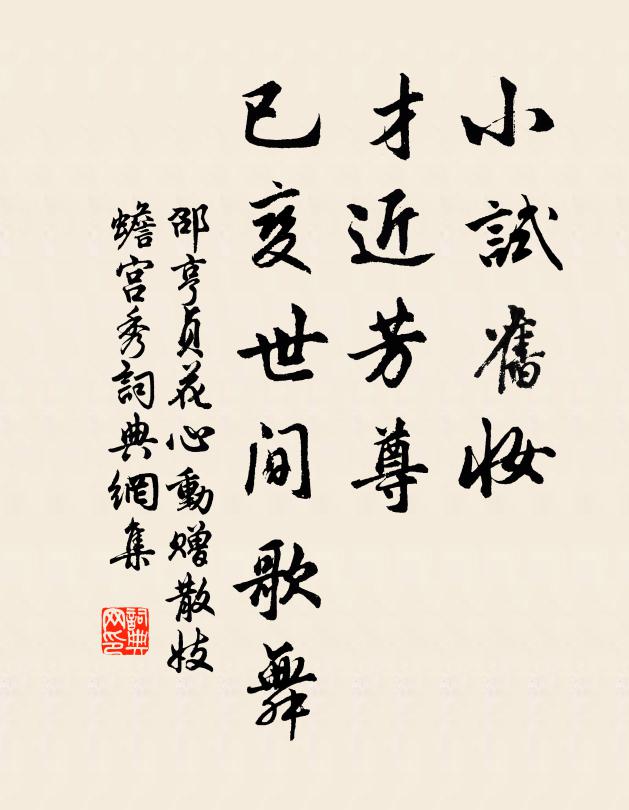 小試舊妝
才近芳尊
已变世間歌舞
邵亨貞花心動贈散妓
蟾宮秀詞典網集
詞典网印